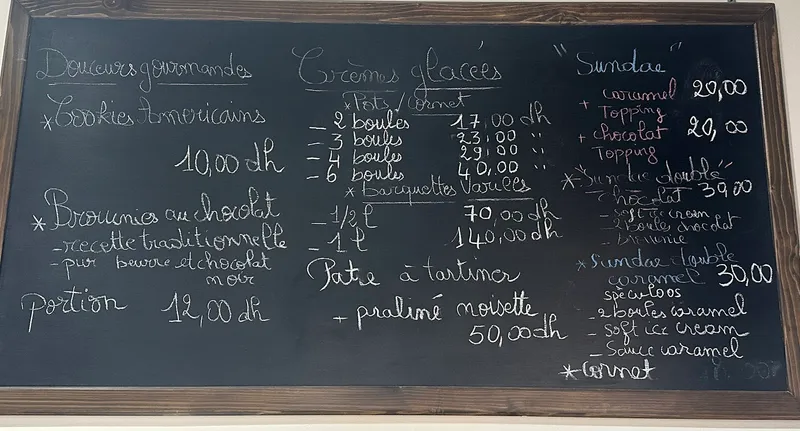 Douceurs gourmandes
* Cookies Americains
10,00 dh
* Brownies au chocolat
- recette traditionnelle
- pur beurre et chocolat
noir
portion 12,00 dh
Crèmes glacées
* Pots / Cornet
- 2 boules 17,00 dh
- 3 boules 23,00 "
- 4 boules 29,00 "
- 6 boules 40,00 "
* Barquettes Variées
- 1/2 l 70,00 dh
- 1 l 140,00 dh
Pate à tartiner
+ praliné noisette
50,00 dh
"Sundae"
+ caramel 20,00
Topping
+ chocolat 20,00
Topping
* "Sundae double"
chocolat 39,00
- soft ice cream
- 2 boule chocolat
- brownie
* Sundae double
caramel 30,00
speculoos
- 2 boules caramel
- Soft ice cream
- Sauce caramel
* Cornet